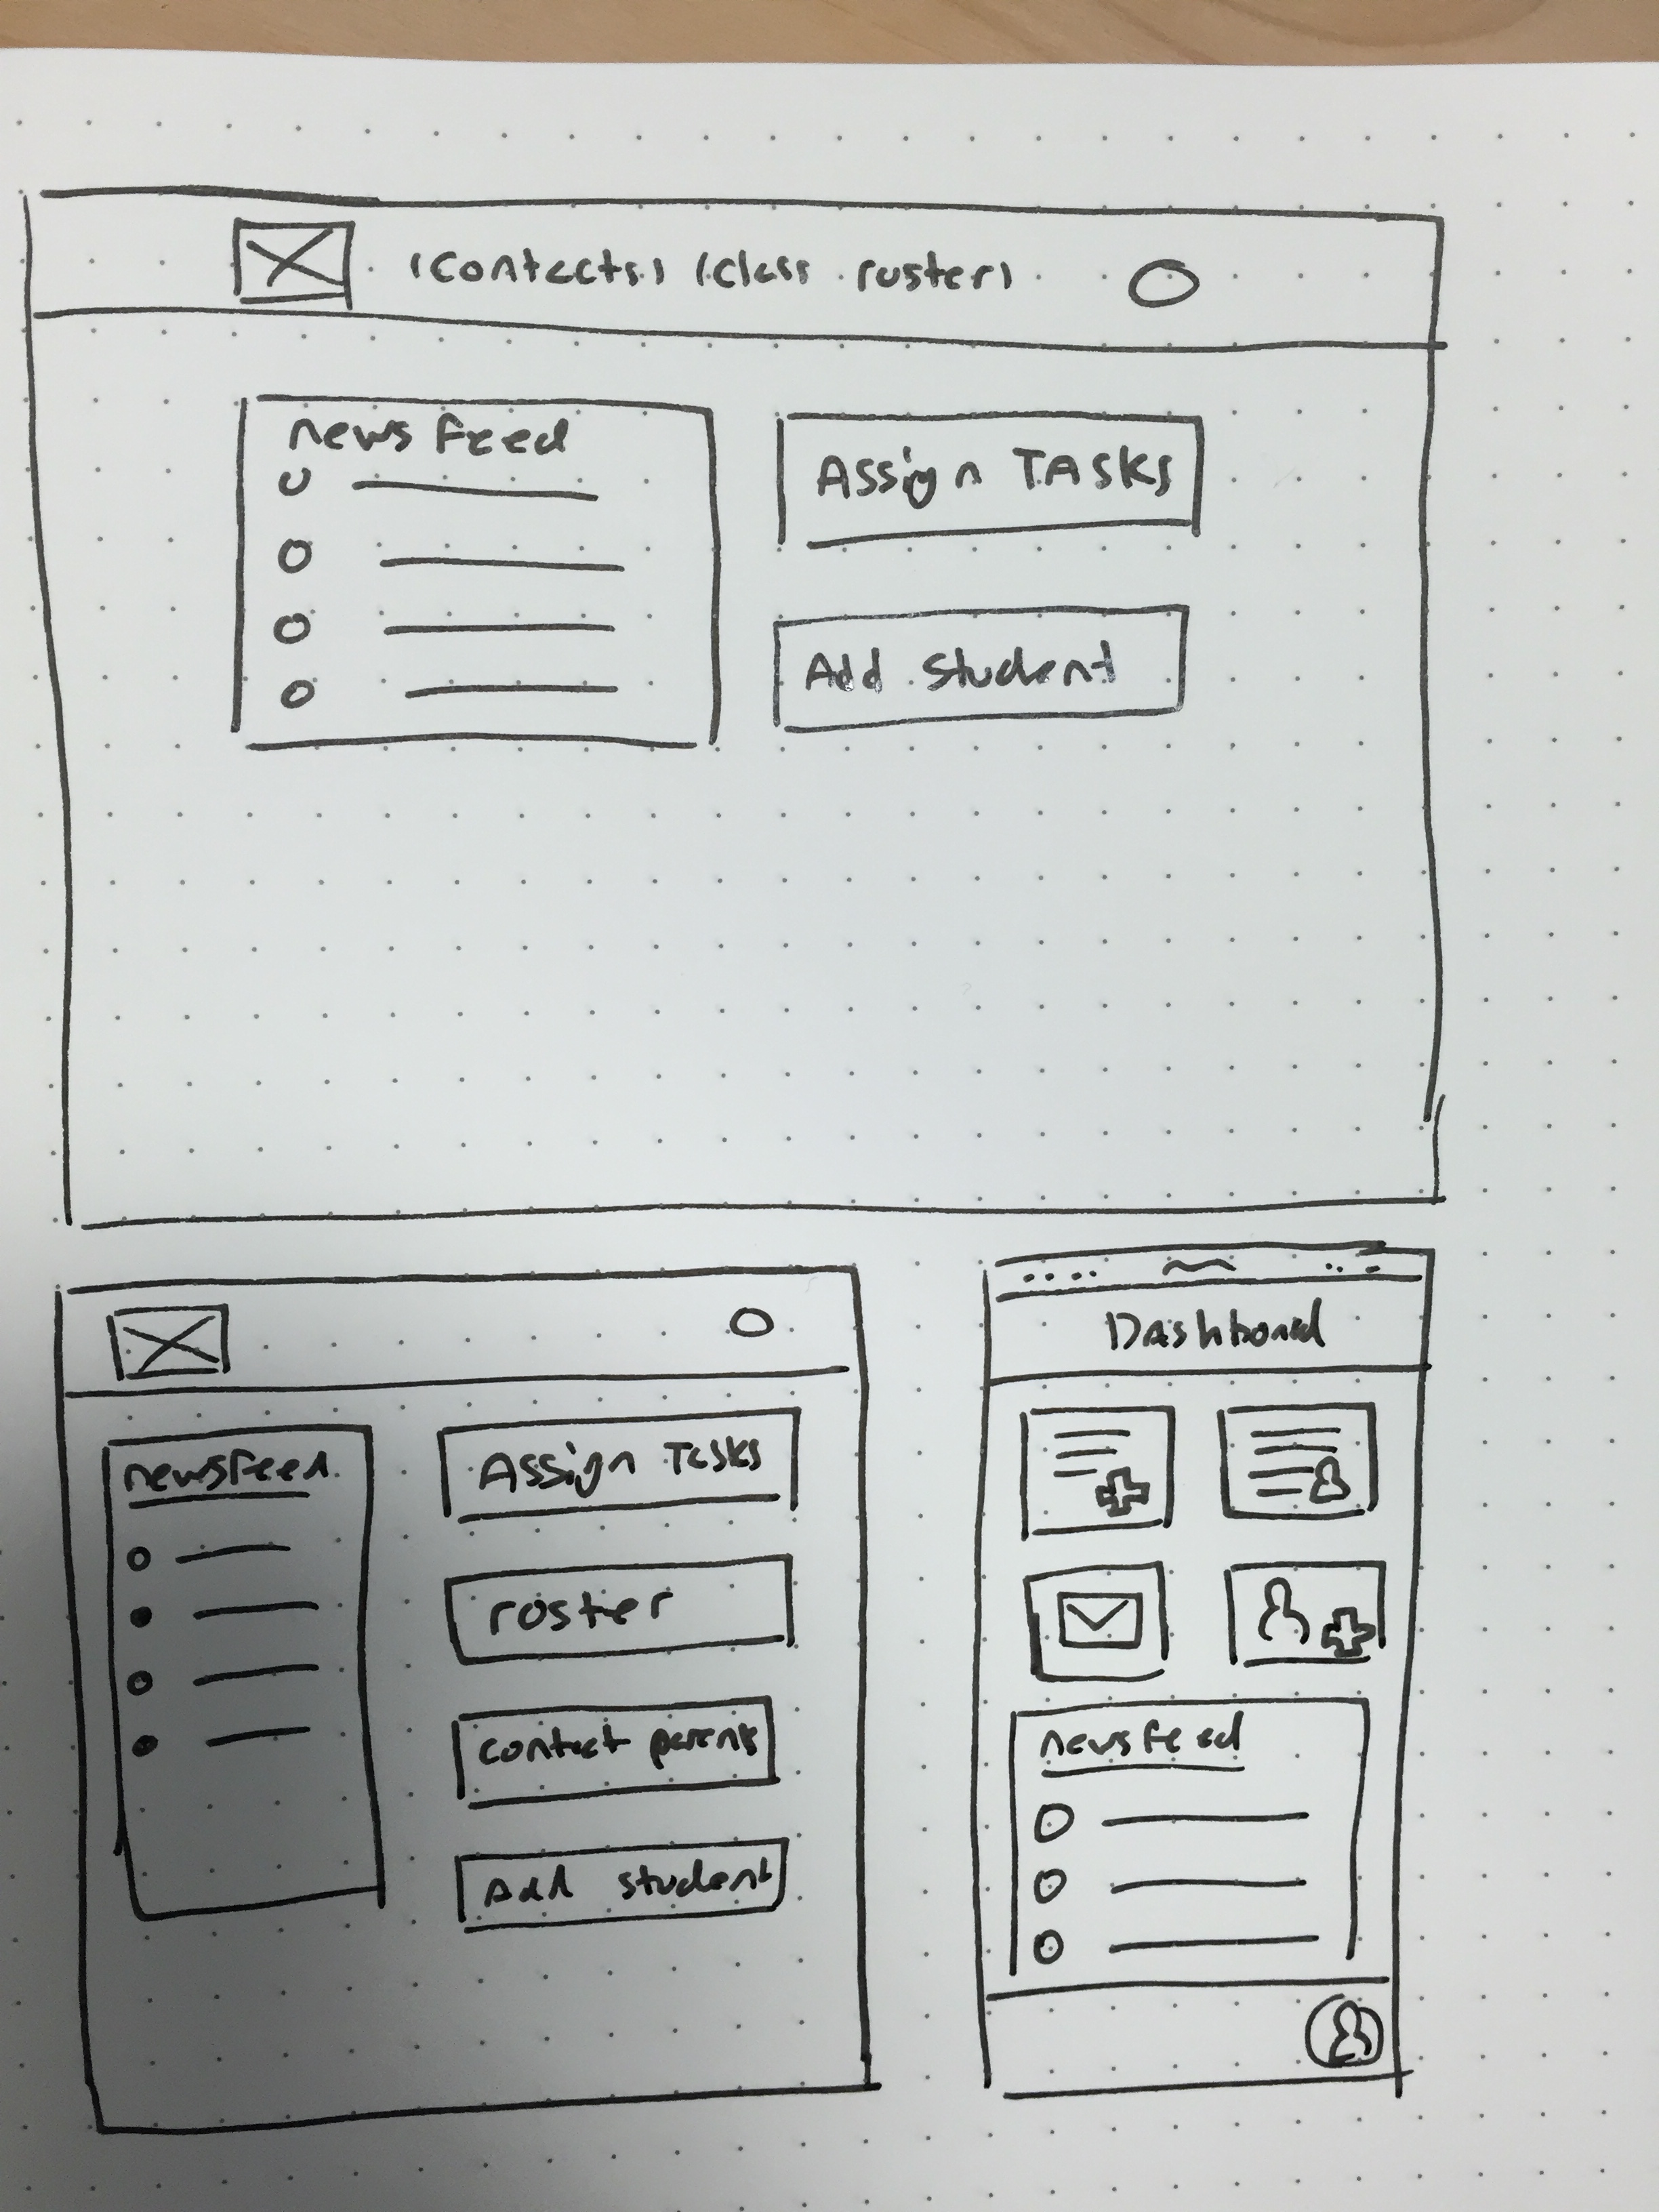 |Contacts| |Class roster|
news feed
Assign TASKS
Add student
newsfeed
Assign Tasks
roster
contact parents
Add student
Dashboard
newsfeed